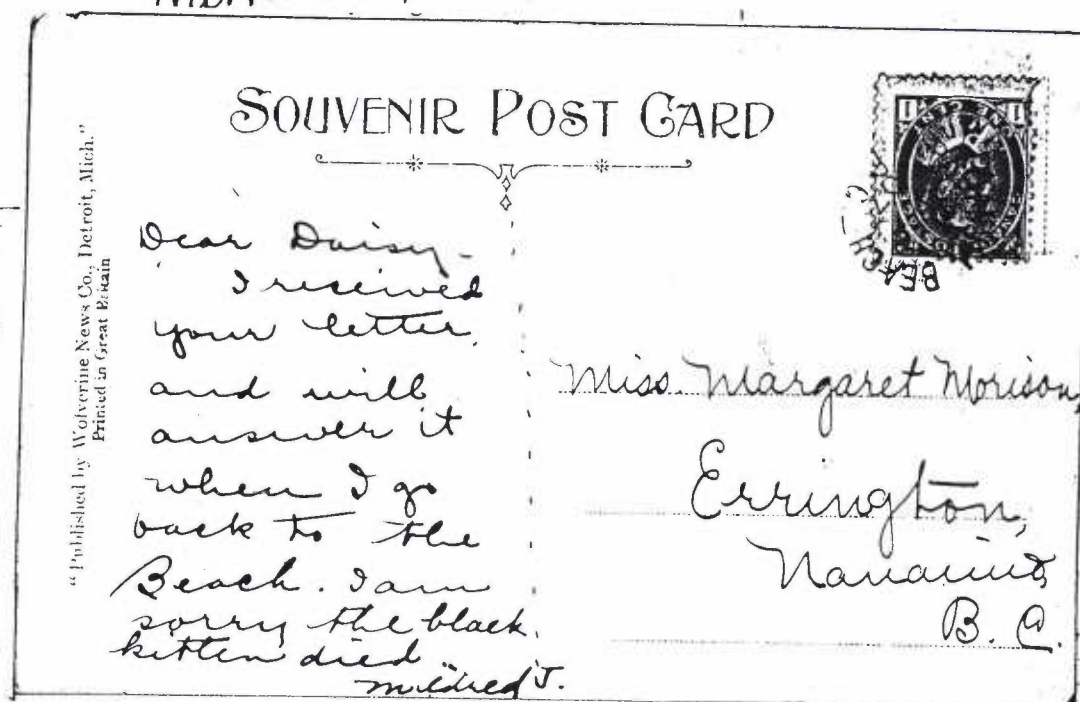 SOUVENIR POST CARD
"Published by Wolverine News Co., Detroit, Mich."
Printed in Great Britain
Dear Daisy -
I received
your letter,
and will
answer it
when I go
back to the
Beach. I am
sorry the black
kitten died
Mildred J.
1 1
BEACH
Miss. Margaret Morison,
Errington,
Nanaimo,
B. C.